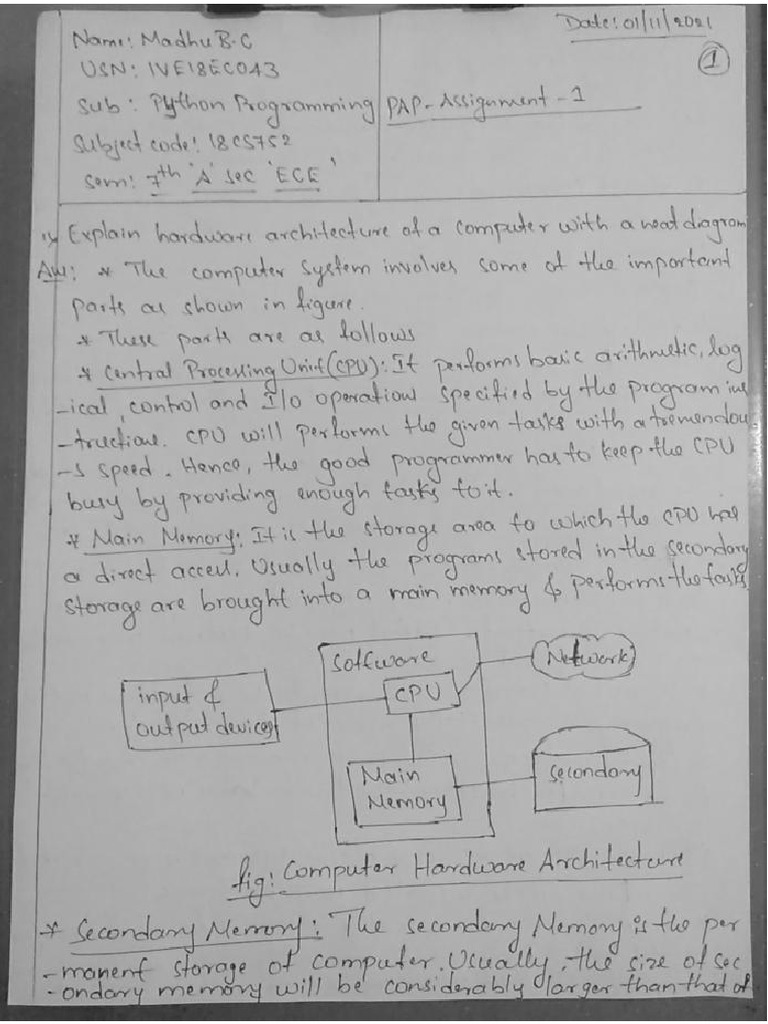 Date: 01/11/2021
Name: Madhu B.C
1
USN: 1VE18EC043
Sub: Python Programming PAP-Assignment-1
Subject code: 18CS752
Sem: 7th 'A' sec 'ECE'
1) Explain hardware architecture of a computer with a neat diagram
Ans: * The computer system involves some of the important
parts as shown in figure.
* These parts are as follows
* Central Processing Unit (CPU): It performs basic arithmetic, log
-ical, control and I/o operations specified by the program ins
-tructions. CPU will performs the given tasks with a tremendou
-s speed. Hence, the good programmer has to keep the CPU
busy by providing enough tasks to it.
* Main Memory: It is the storage area to which the CPU has
a direct access. Usually the programs stored in the secondary
storage are brought into a main memory & performs the tasks
Software
Network
input &
output devices
CPU
Main
Memory
Secondary
fig: Computer Hardware Architecture
* Secondary Memory: The secondary Memory is the per
-manent storage of computer. Usually, the size of sec
-ondary memory will be considerably larger than that of